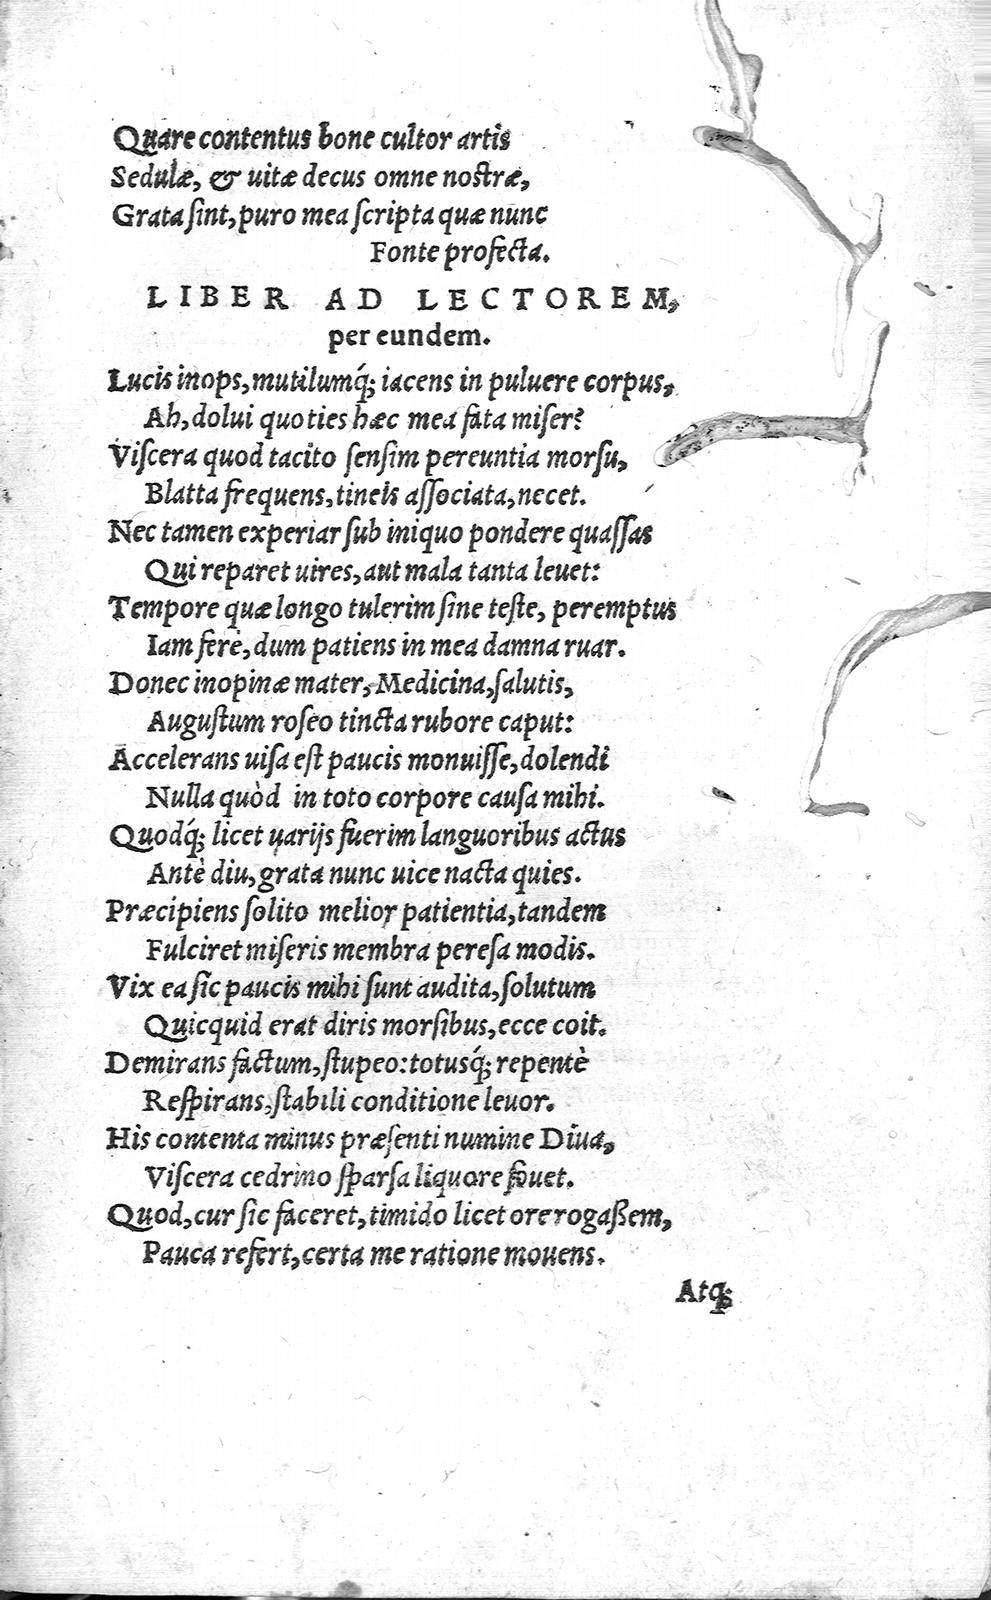 Quare contentus bone cultor artis
Sedulæ, & uitæ decus omne nostræ,
Grata sint, puro mea scripta quæ nunc
Fonte profecta.
LIBER AD LECTOREM,
per eundem.
Lucis inops, mutilumq́; iacens in puluere corpus,
Ah, dolui quoties hæc mea fata miser?
Viscera quod tacito sensim pereuntia morsu,
Blatta frequens, tineis associata, necet.
Nec tamen experiar sub iniquo pondere quassas
Qui reparet uires, aut mala tanta leuet:
Tempore quæ longo tulerim sine teste, peremptus
Iam ferè, dum patiens in mea damna ruar.
Donec inopinæ mater, Medicina, salutis,
Augustum roseo tincta rubore caput:
Accelerans uisa est paucis monuisse, dolendi
Nulla quòd in toto corpore causa mihi.
Quodq́; licet uarijs fuerim languoribus actus
Antè diu, grata nunc uice nacta quies.
Præcipiens solito melior patientia, tandem
Fulciret miseris membra peresa modis.
Vix ea sic paucis mihi sunt audita, solutum
Quicquid erat diris morsibus, ecce coit.
Demirans factum, stupeo: totusq́; repentè
Respirans, stabili conditione leuor.
His contenta minus præsenti numine Diua,
Viscera cedrino sparsa liquore fouet.
Quod, cur sic faceret, timido licet ore rogaßem,
Pauca refert, certa me ratione mouens.
Atq;